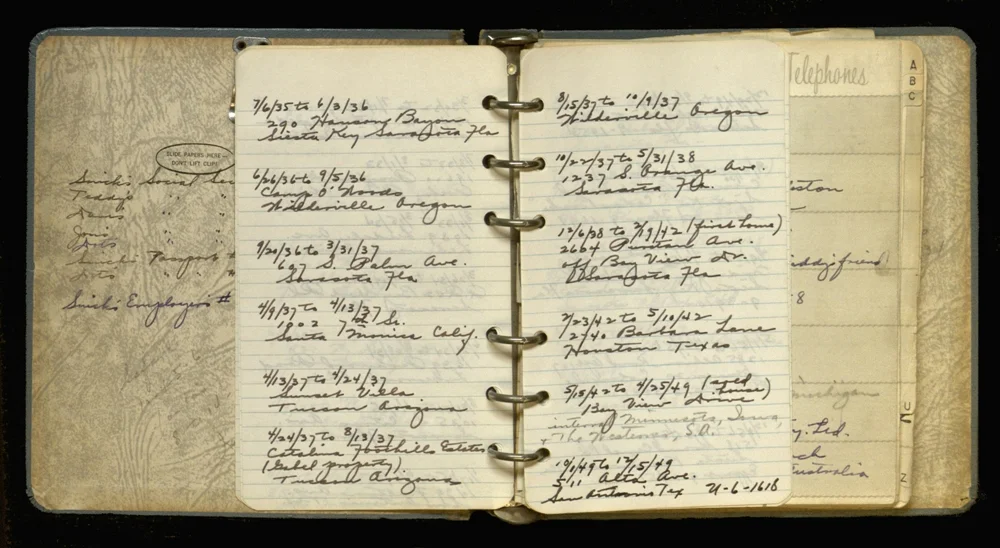 SLICK PAPERS HERE-
DON'T LIFT CLIP!
Smick's Social Sec
Teddy's " "
" "
" "
Dots
Passport #
Dots " "
Smick's Employer's #
7/6/35 to 6/3/36
290 Hansons Bayou
Siesta Key Sarasota Fla
6/26/36 to 9/5/36
Camp O' Woods
Wilderville Oregon
9/20/36 to 3/31/37
697 S. Palm Ave.
Sarasota Fla
4/9/37 to 4/13/37
1002 7th St.
Santa Monica Calif.
4/13/37 to 4/24/37
Sunset Villa
Tucson Arizona
4/24/37 to 8/13/37
Catalina Foothills Estates
(Gabel property).
Tucson Arizona
8/15/37 to 10/9/37
Wilderville Oregon
10/22/37 to 5/31/38
1237 S. Orange Ave.
Sarasota Fla.
12/6/38 to 2/19/42 (first home)
2664 Ave.
off Bay View Dr.
Sarasota Fla
2/23/42 to 5/10/42
1240 Barbara Lane
Houston Texas
5/15/42 to 4/25/49 (
house)
Bay View Drive
Minnesota, Iowa,
+ The Westerner, S.A.
10/1/49 to 12/15/49
511 Alta Ave.
San Antonio Tex U-6-1618
Telephones
ston
friend
8
michigan
y. Ltd.
ch
Australia
A
B
C
U
Z